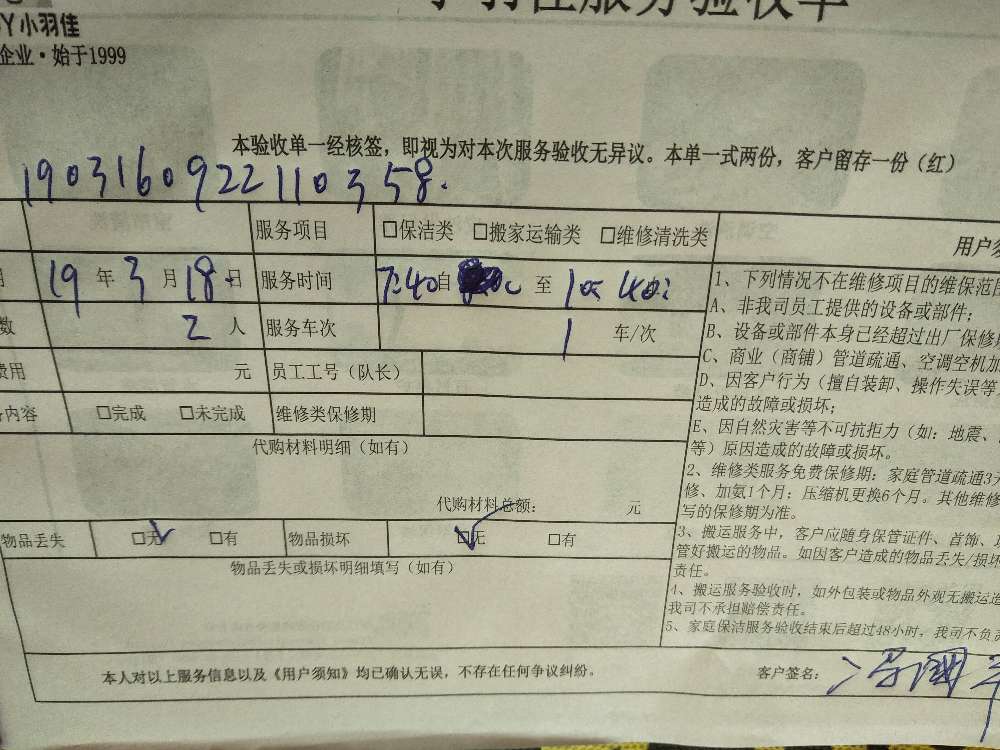 小羽佳服务验收单
Y小羽佳
企业·始于1999
本验收单一经核签，即视为对本次服务验收无异议。本单一式两份，客户留存一份（红）
19031609221103 58.
服务项目 □保洁类 □搬家运输类 □维修清洗类 用户须
19年3月18日 服务时间 7:40自 至 10:40
数 2人 服务车次 1 车/次
费用 元 员工工号（队长）
内容 □完成 □未完成 维修类保修期
代购材料明细（如有）
代购材料总额： 元
物品丢失 □无 □有 物品损坏 □无 □有
物品丢失或损坏明细填写（如有）
1、下列情况不在维修项目的维保范
A、非我司员工提供的设备或部件；
B、设备或部件本身已经超过出厂保修
C、商业（商铺）管道疏通、空调空机加
D、因客户行为（擅自装卸、操作失误等
造成的故障或损坏；
E、因自然灾害等不可抗拒力（如：地震、
等）原因造成的故障或损坏。
2、维修类服务免费保修期：家庭管道疏通3天
修、加氨1个月；压缩机更换6个月。其他维修
写的保修期为准。
3、搬运服务中，客户应随身保管证件、首饰、
管好搬运的物品。如因客户造成的物品丢失/损坏
责任。
4、搬运服务验收时，如外包装或物品外观无搬运造
我司不承担赔偿责任。
5、家庭保洁服务验收结束后超过48小时，我司不负责
本人对以上服务信息以及《用户须知》均已确认无误，不存在任何争议纠纷。 客户签名：